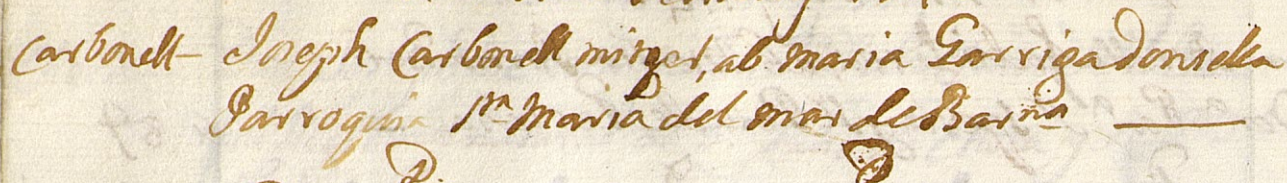 Carbonell Joseph Carbonell mitger, ab maria Garriga donsella
Parroquia Sta Maria del mar de Barna